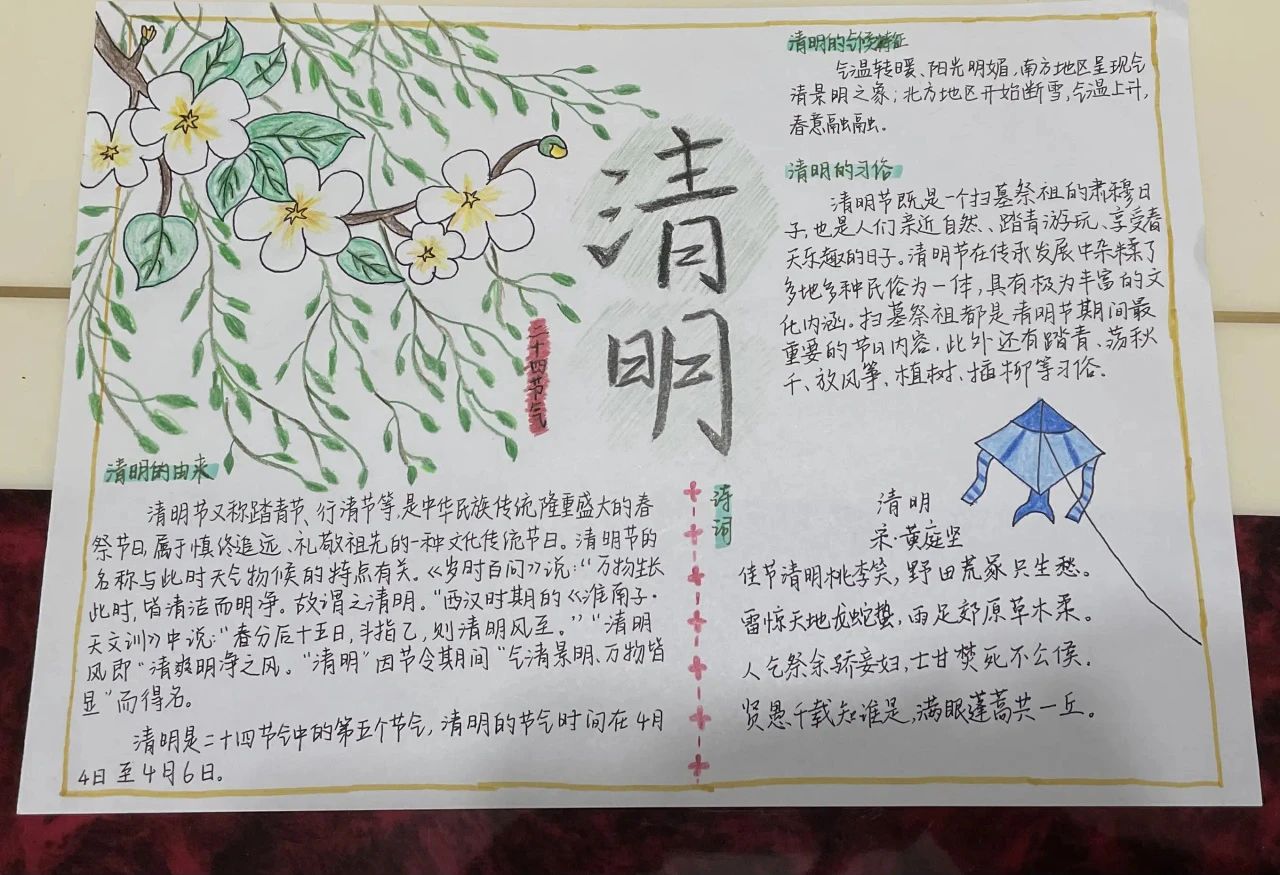 清明
二十四节气
清明的气候特征
气温转暖、阳光明媚,南方地区呈现气
清景明之象;北方地区开始断雪,气温上升,
春意融融。
清明的习俗
清明节既是一个扫墓祭祖的肃穆日
子,也是人们亲近自然、踏青游玩、享受春
天乐趣的日子。清明节在传承发展中杂糅了
多地多种民俗为一体,具有极为丰富的文
化内涵。扫墓祭祖都是清明节期间最
重要的节日内容,此外还有踏青、荡秋
千、放风筝、植树、插柳等习俗.
清明的由来
清明节又称踏青节、行清节等,是中华民族传统隆重盛大的春
祭节日,属于慎终追远、礼敬祖先的一种文化传统节日。清明节的
名称与此时天气物候的特点有关。《岁时百问》说:“万物生长
此时,皆清洁而明净。故谓之清明。”西汉时期的《淮南子·
天文训》中说:“春分后十五日,斗指乙,则清明风至。”“清明
风即“清爽明净之风。“清明”因节令期间“气清景明、万物皆
显”而得名。
清明是二十四节气中的第五个节气,清明的节气时间在4月
4日至4月6日。
诗词
清明
宋·黄庭坚
佳节清明桃李笑,野田荒冢只生愁。
雷惊天地龙蛇蛰,雨足郊原草木柔。
人乞祭余骄妾妇,士甘焚死不公侯.
贤愚千载知谁是,满眼蓬蒿共一丘。